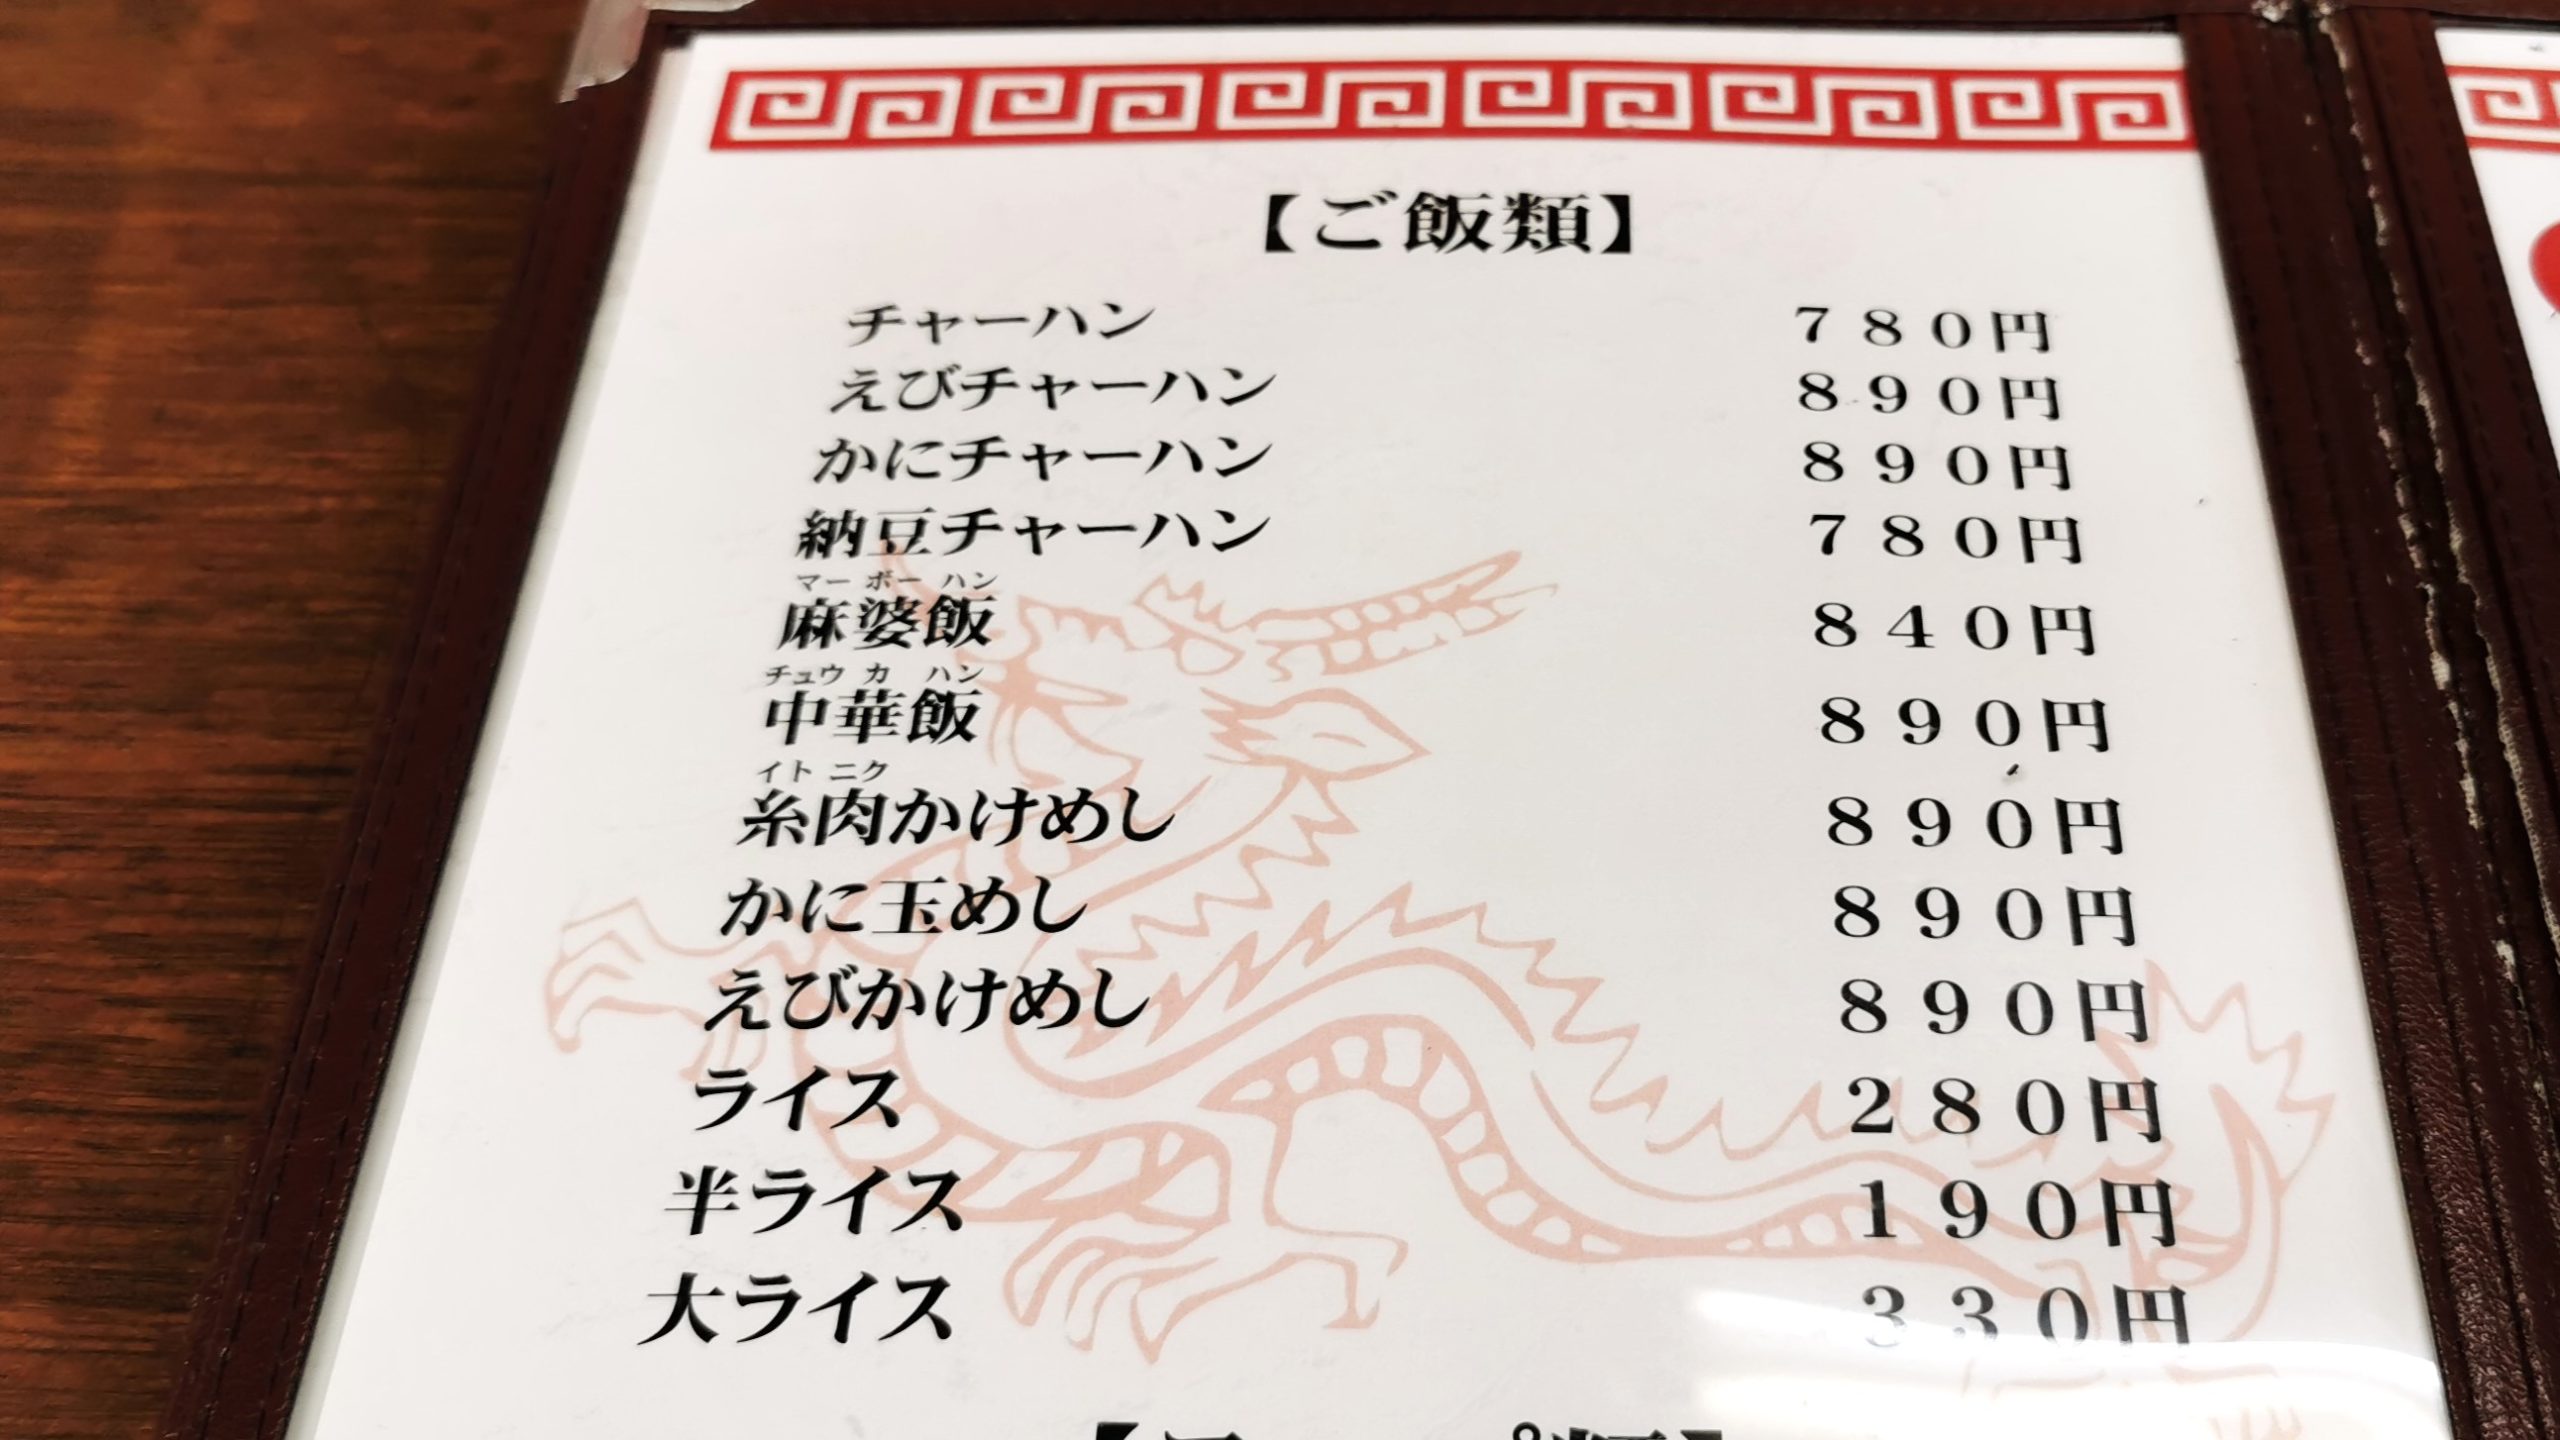 【ご飯類】
チャーハン 780円
えびチャーハン 890円
かにチャーハン 890円
納豆チャーハン 780円
マーボーハン
麻婆飯 840円
チュウカハン
中華飯 890円
イトニク
糸肉かけめし 890円
かに玉めし 890円
えびかけめし 890円
ライス 280円
半ライス 190円
大ライス 330円